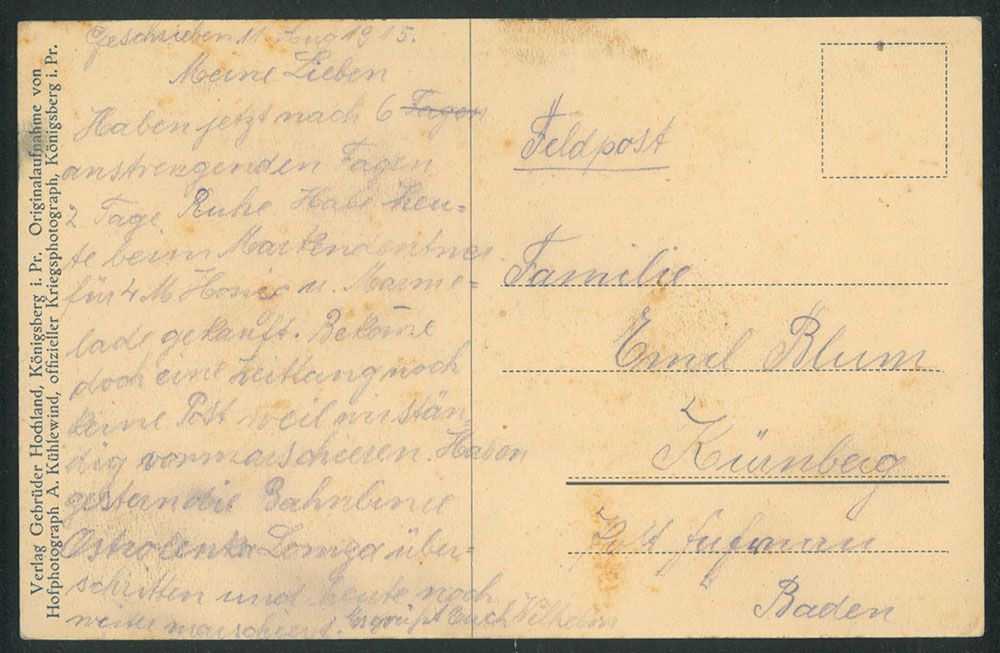 Geschrieben 11. Aug 1915.
Meine Lieben
Haben jetzt nach 6 Tagen
anstrengenden Tagen
2 Tage Ruhe Habe heu-
te beim Markendentner
für 4 M Honig u. Marme-
lade gekauft. Bekome
doch eine Zeitlang noch
keine Post weil wir stän-
dig vormarschieren. Haben
gestern die Bahnlinie
Ostrolenka Lomza über-
schritten und heute noch
weiter marschiert. Es grüßt Euch Wilhelm
Verlag Gebrüder Hochland, Königsberg i. Pr. Originalaufnahme von
Hofphotograph A. Kühlewind, offizieller Kriegsphotograph, Königsberg i. Pr.
Feldpost
Familie
Emil Blum
Kürnberg
Post
Baden